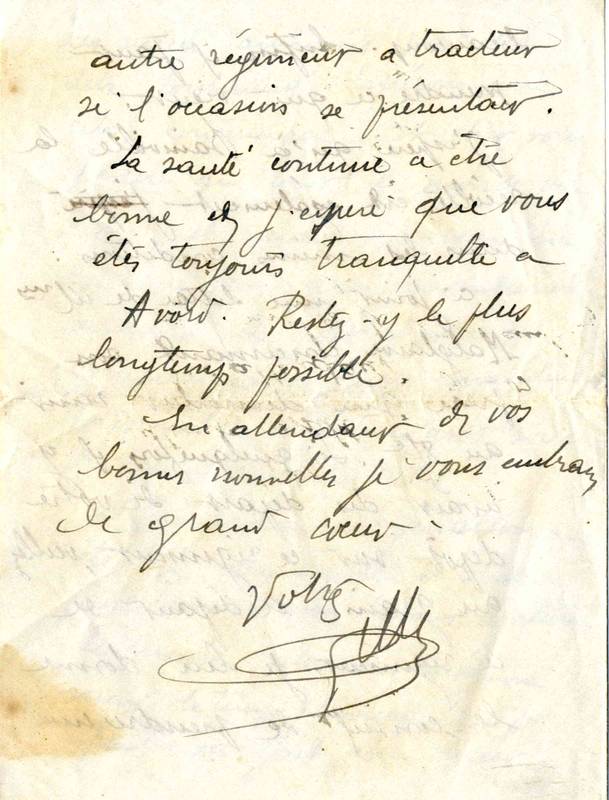 autre régiment a tracteur
si l'occasion se présentait.
La santé continue a être
bonne et j'espère que vous
êtes toujours tranquille a
Avord. Restez y le plus
longtemps possible.
En attendant de vos
bonnes nouvelles je vous embrasse
de grand coeur.
Votre